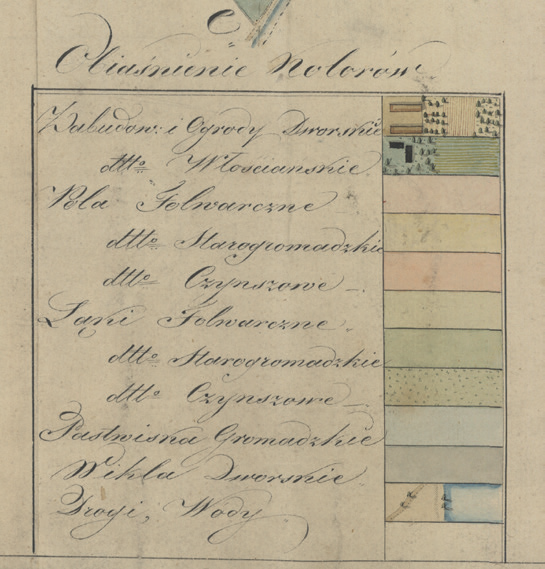 Obiaśnienie Kolorów
Zabudow: i Ogrody Dworskie
dtto Włosciańskie
Pola Folwarczne
dtto Starogromadzkie
dtto Czynszowe
Łąki Folwarczne
dtto Starogromadzkie
dtto Czynszowe
Pastwiska Gromadzkie
Wikla Dworskie
Drogi, Wody